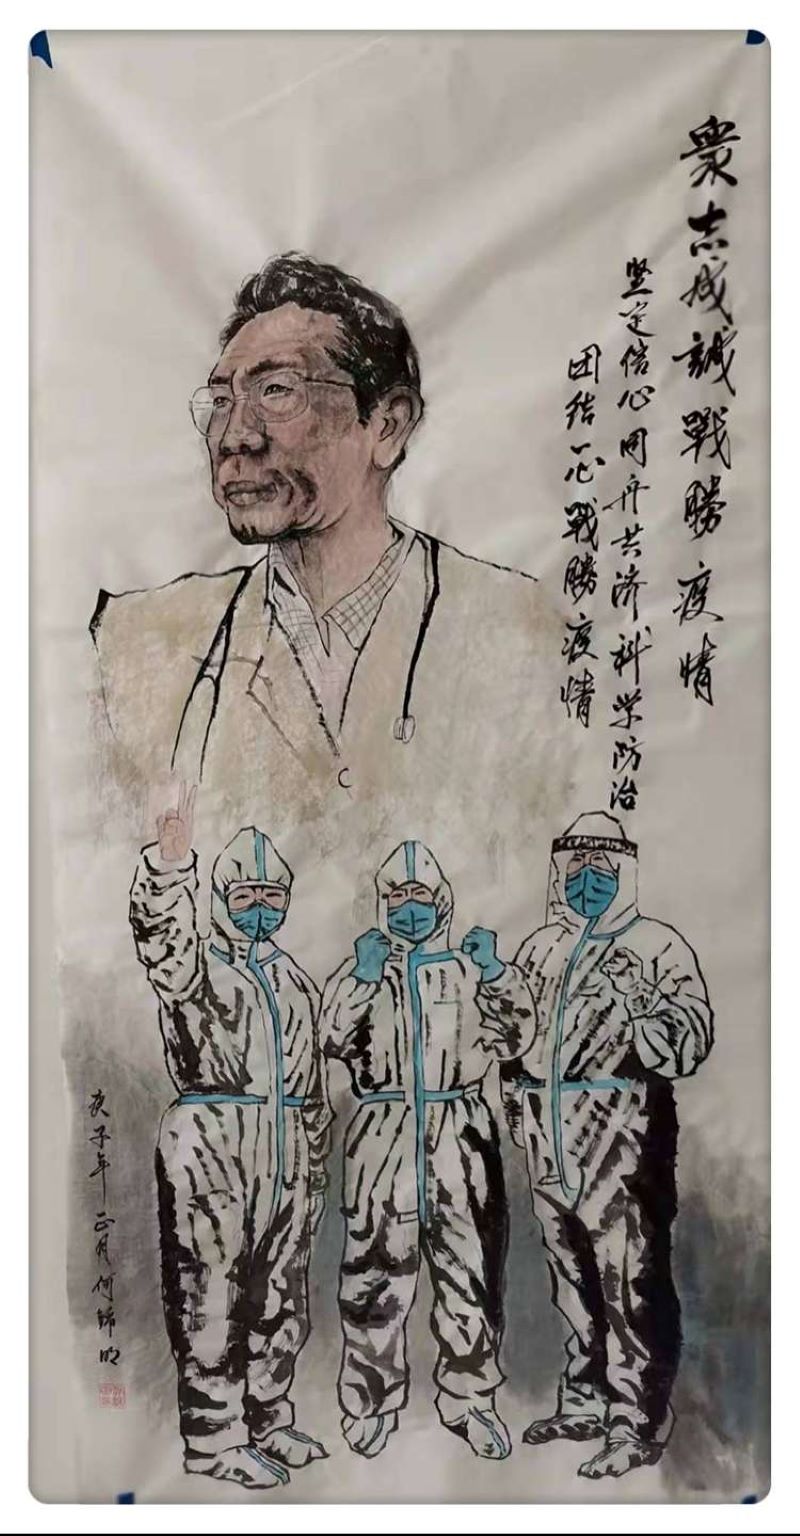 衆志成誠戰勝疫情
坚定信心同舟共济科学防治
团结一心戰勝疫情
庚子年正月何锦明